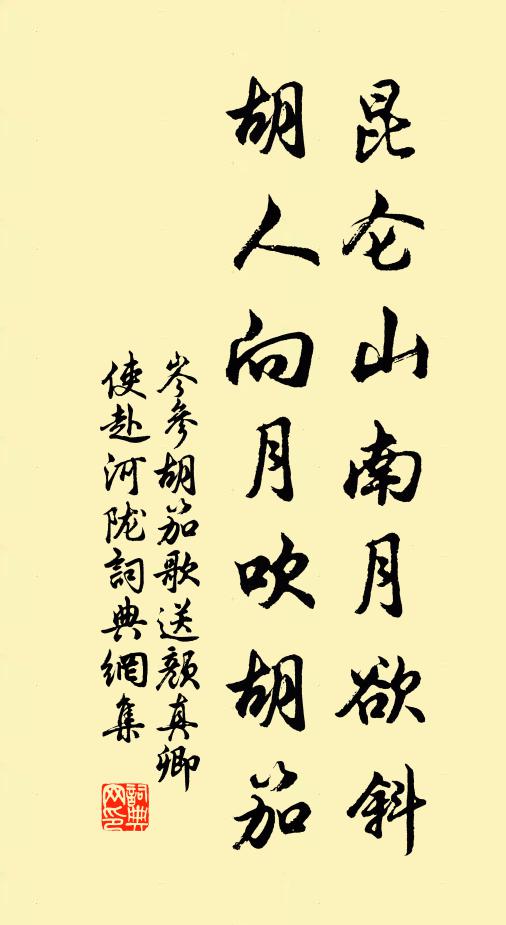 昆仑山南月欲斜
胡人向月吹胡笳
岑參胡笳歌送颜真卿
使赴河陇詞典網集
詞典
网印